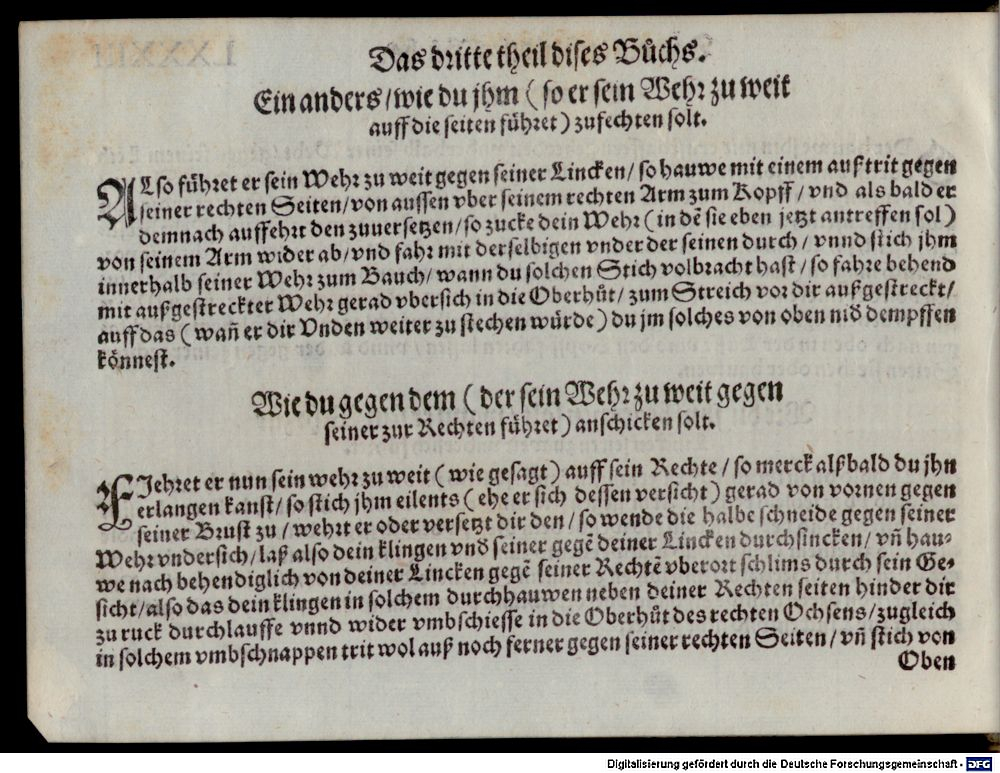 Das dritte theil dises Bůchs.
Ein anders / wie du jhm ( so er sein Wehr zu weit
auff die seiten führet ) zufechten solt.
ALso führet er sein Wehr zu weit gegen seiner Lincken / so hauwe mit einem außtrit gegen
seiner rechten Seiten / von aussen vber seinem rechten Arm zum Kopff / vnd als bald er
demnach auffehrt den zuuersetzen / so zucke dein Wehr ( in dẽ sie eben jetzt antreffen sol )
von seinem Arm wider ab / vnd fahr mit derselbigen vnder der seinen durch / vnnd stich jhm
innerhalb seiner Wehr zum Bauch / wann du solchen Stich volbracht hast / so fahre behend
mit außgestreckter Wehr gerad vbersich in die Oberhůt / zum Streich vor dir außgestreckt /
auff das ( wañ er dir Vnden weiter zu stechen würde ) du jm solches von oben nid dempffen
könnest.
Wie du gegen dem ( der sein Wehr zu weit gegen
seiner zur Rechten führet ) anschicken solt.
FJehret er nun sein wehr zu weit ( wie gesagt ) auff sein Rechte / so merck alßbald du jhn
erlangen kanst / so stich jhm eilents ( ehe er sich dessen versicht ) gerad von vornen gegen
seiner Brust zu / wehrt er oder versetzt dir den / so wende die halbe schneide gegen seiner
Wehr vndersich / laß also dein klingen vnd seiner gegẽ deiner Lincken durchsincken / vñ hau-
we nach behendiglich von deiner Lincken gegẽ seiner Rechtẽ vberort schlims durch sein Ge-
sicht / also das dein klingen in solchem durchhauwen neben deiner Rechten seiten hinder dir
zu ruck durchlauffe vnnd wider vmbschiesse in die Oberhůt des rechten Ochsens / zugleich
in solchem vmbschnappen trit wol auß noch ferner gegen seiner rechten Seiten / vñ stich von
Oben
Digitalisierung gefördert durch die Deutsche Forschungsgemeinschaft - DFG